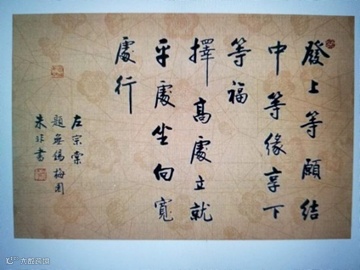 發上等願結
中等緣享下
等福
擇高處立就
平處坐向寬
處行
左宗棠
題無錫梅園
朱非書